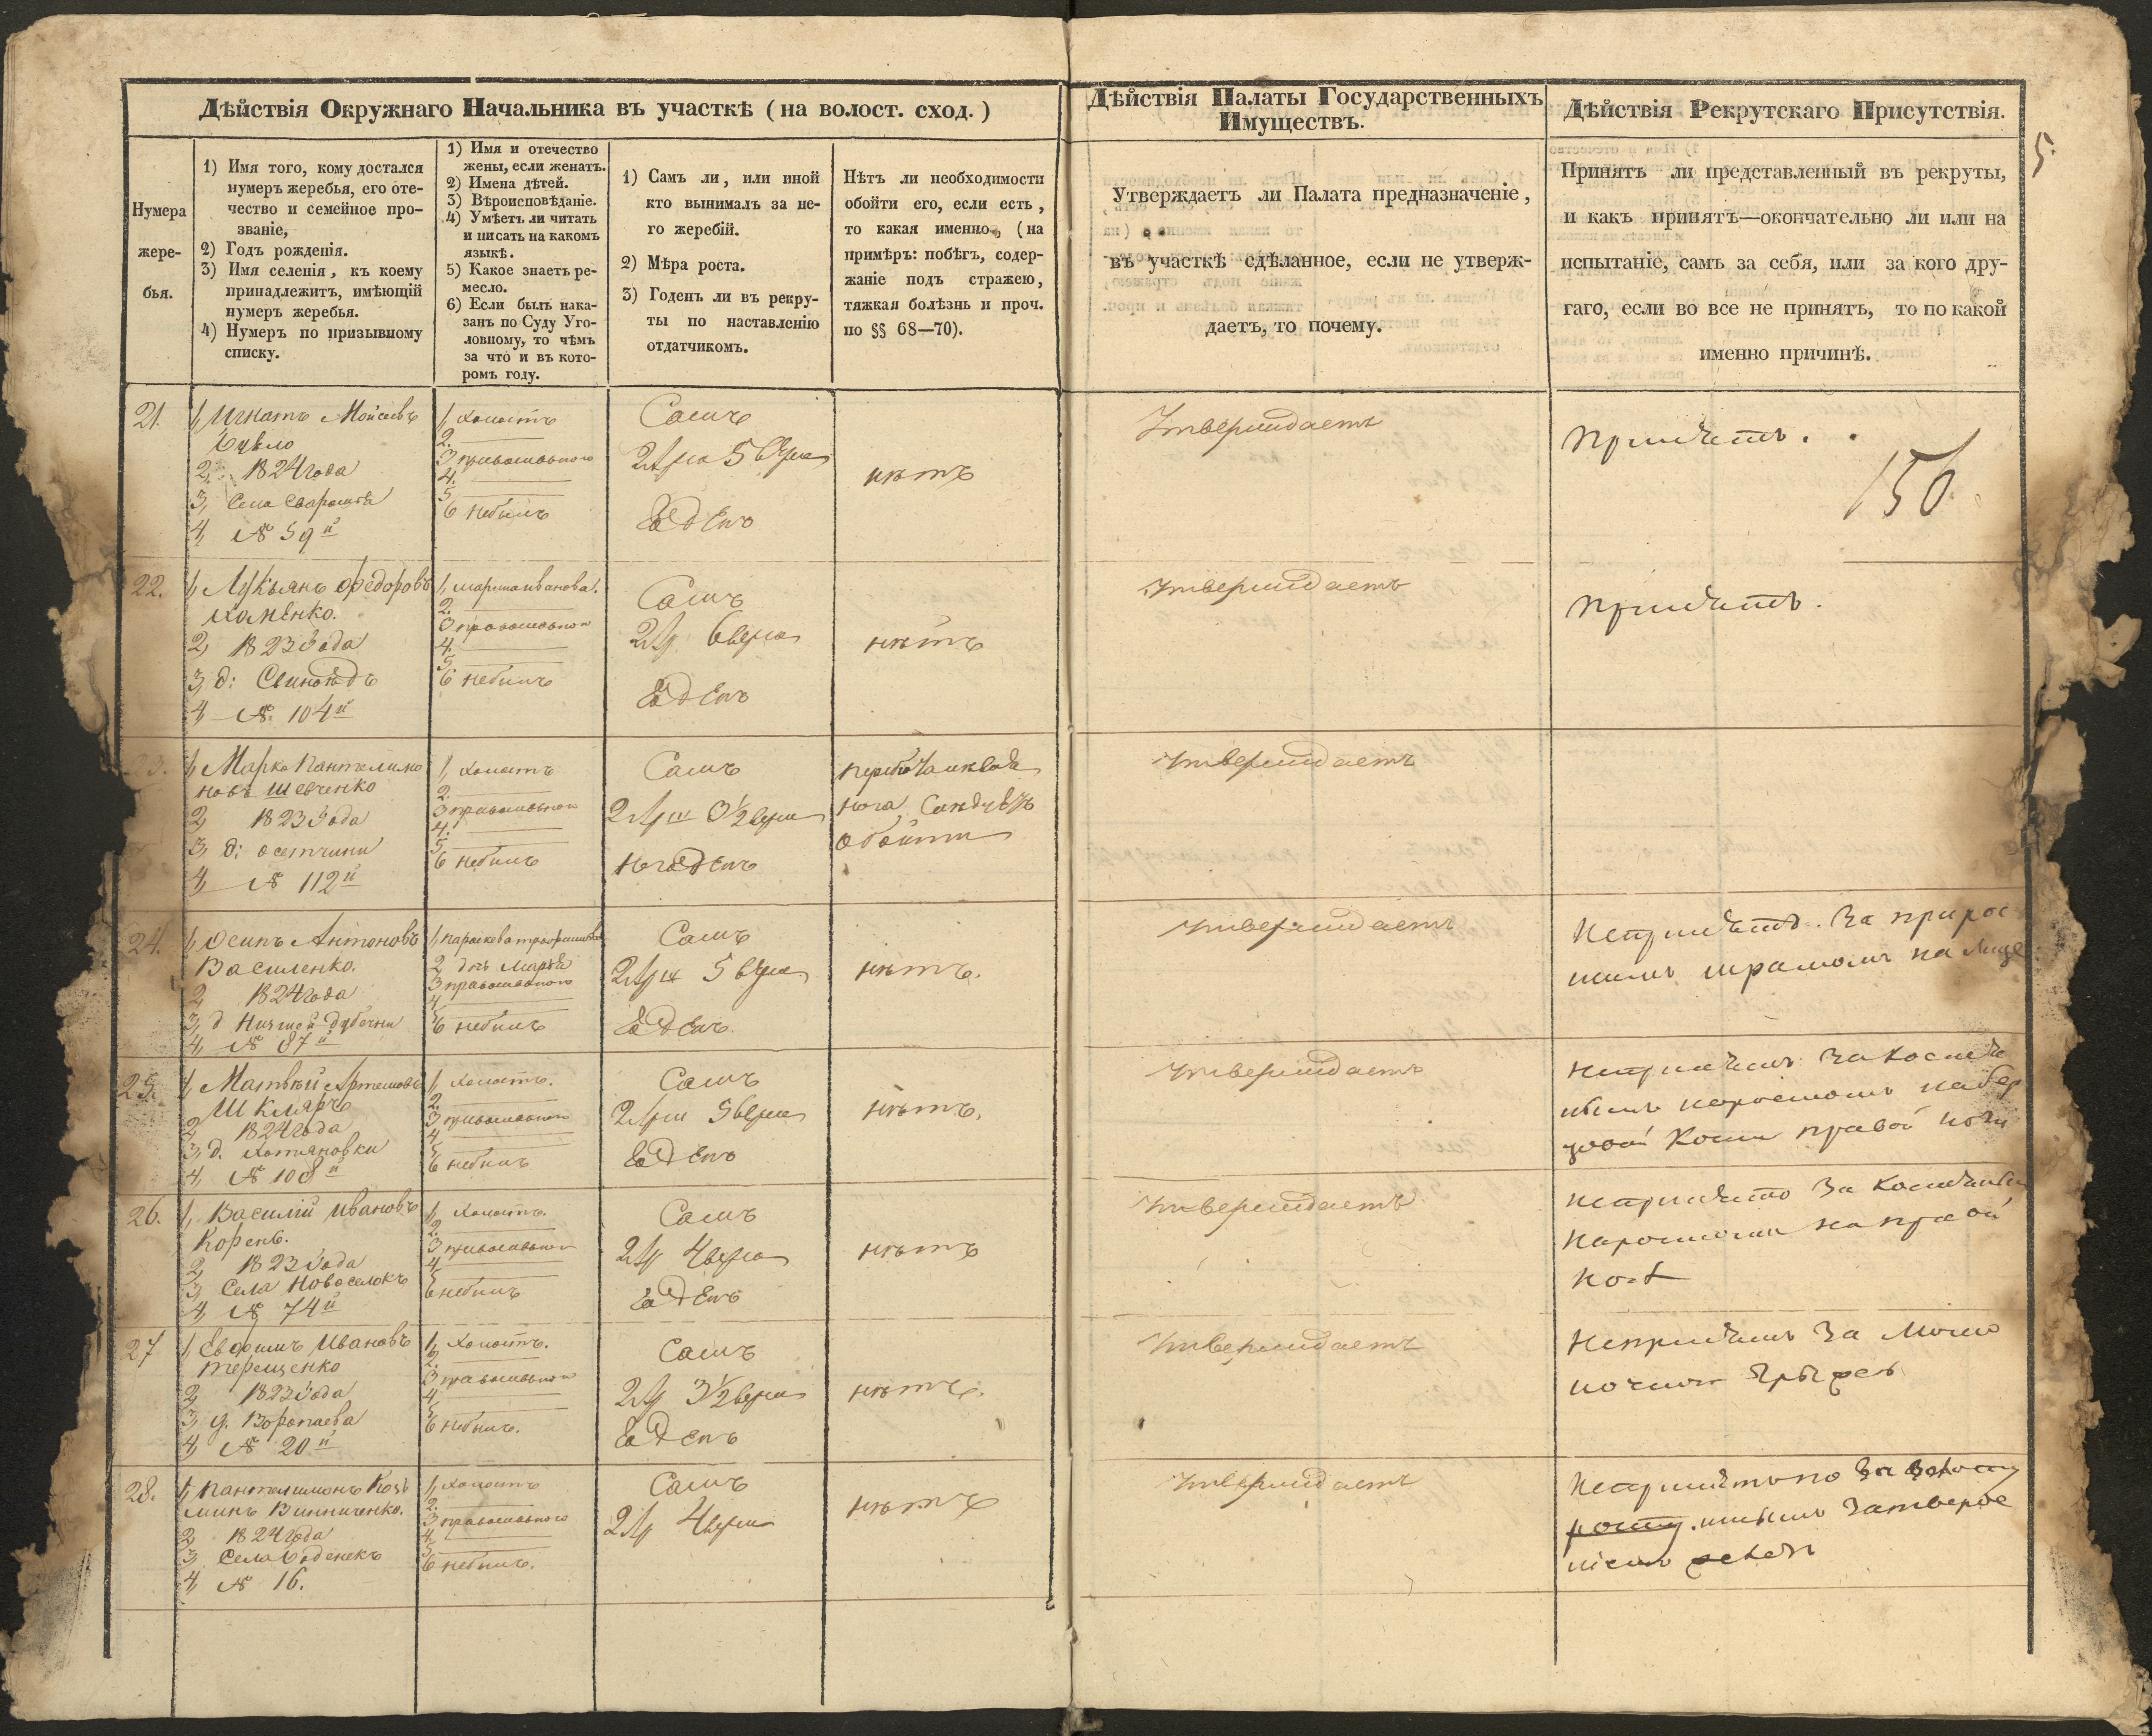 Дѣйствія Окружнаго Начальника въ участкѣ (на волост. сход.)
Нумера
жере-
бья.
1) Имя того, кому достался
нумеръ жеребья, его оте-
чество и семейное про-
званіе,
2) Годъ рожденія.
3) Имя селенія, къ коему
принадлежитъ, имѣющій
нумеръ жеребья.
4) Нумеръ по призывному
списку.
1) Имя и отечество
жены, если женатъ.
2) Имена дѣтей.
3) Вѣроисповѣданіе.
4) Умѣетъ ли читать
и писать на какомъ
языкѣ.
5) Какое знаетъ ре-
месло.
6) Если былъ нака-
занъ по Суду Уго-
ловному, то чѣмъ
за что и въ кото-
ромъ году.
1) Самъ ли, или иной
кто вынималъ за не-
го жеребій.
2) Мѣра роста.
3) Годенъ ли въ рекру-
ты по наставленію
отдатчикомъ.
Нѣтъ ли необходимости
обойти его, если есть,
то какая именно, (на
примѣръ: побѣгъ, содер-
жаніе подъ стражею,
тяжкая болѣзнь и проч.
по §§ 68—70).
Дѣйствія Палаты Государственныхъ
Имуществъ.
Утверждаетъ ли Палата предназначеніе,
въ участкѣ сдѣланное, если не утверж-
даетъ, то почему.
Дѣйствія Рекрутскаго Присутствія.
Принятъ ли представленный въ рекруты,
и какъ принятъ—окончательно ли или на
испытаніе, самъ за себя, или за кого дру-
гаго, если во все не принятъ, то по какой
именно причинѣ.
5.
21.
1, Игнатъ Моисеевъ
2. 1824 года
3, Села
4, № 59й
1, холостъ
2.
3 православного
4.
5
6 небылъ
Самъ
2 Ар 5 верш
Годенъ
нѣтъ
Утверждаетъ
Принятъ.
156.
22.
1, Лукьянъ Федоровъ
Хоменко.
2, 1823 года
3, д: Свиноѣдъ
4, № 104й
1, Марта Иванова.
2.
3 православной
4.
5
6 небылъ
Самъ
2 Ар 6 верш
Годенъ
нѣтъ
Утверждаетъ
Принятъ.
23.
1, Марко Пантелимо
новъ Шевченко
2, 1823 года
3, д: Осетчини
4, № 112й
1, холостъ
2.
3 православной
4.
5
6 небылъ
Самъ
2 Арш 3½ верш
негоденъ
нога, Слѣдуетъ
обойти
Утверждаетъ
24.
1, Осипъ Антоновъ
Василенко.
2, 1824 года
3, д Нижшей Дубечни
4, № 87й
1, Параскева Трофимова
2 дочь Марья
3 православного
4
5
6 небылъ
Самъ
2 Арш 5 верш
Годенъ
нѣтъ.
Утверждаетъ
Непринятъ. За прирос
шимъ шрамомъ на лице
25.
1, Матвѣй Артемовъ
Шкляръ
2 1824 года
3, д. Хотяновки
4, № 108й
1, холостъ.
2.
3 православного
4
5
6 небылъ
Самъ
2 Арш 5 верш
Годенъ
нѣтъ.
Утверждаетъ
Непринятъ За костя
нымъ наростомъ на бер
цовой кости правой ноги
26.
1, Василій Ивановъ
Корень.
2, 1823 года
3, Села Новоселокъ
4, № 74й
1, холостъ.
2.
3 православной
4
5
6 небылъ
Самъ
2 Ар 4 верш
Годенъ
нѣтъ
Утверждаетъ
Непринятъ За костянымъ
наростомъ на правой
ногѣ
27
1, Евфимъ Ивановъ
Терещенко
2, 1823 года
3, д. Воропаева
4, № 20й
1, холостъ.
2.
3 православной
4
5
6 небылъ.
Самъ
2 Ар 3½ верш
Годенъ
нѣтъ.
Утверждаетъ
Непринятъ За
28.
1, Пантелимонъ Козь
минъ Винниченко.
2 1824 года
3, Села Боденекъ
4, № 16.
1, холостъ
2.
3 православного
4.
5
6 небылъ.
Самъ
2 Ар 4 верш
нѣтъ
Утверждаетъ
Непринятъ
росту